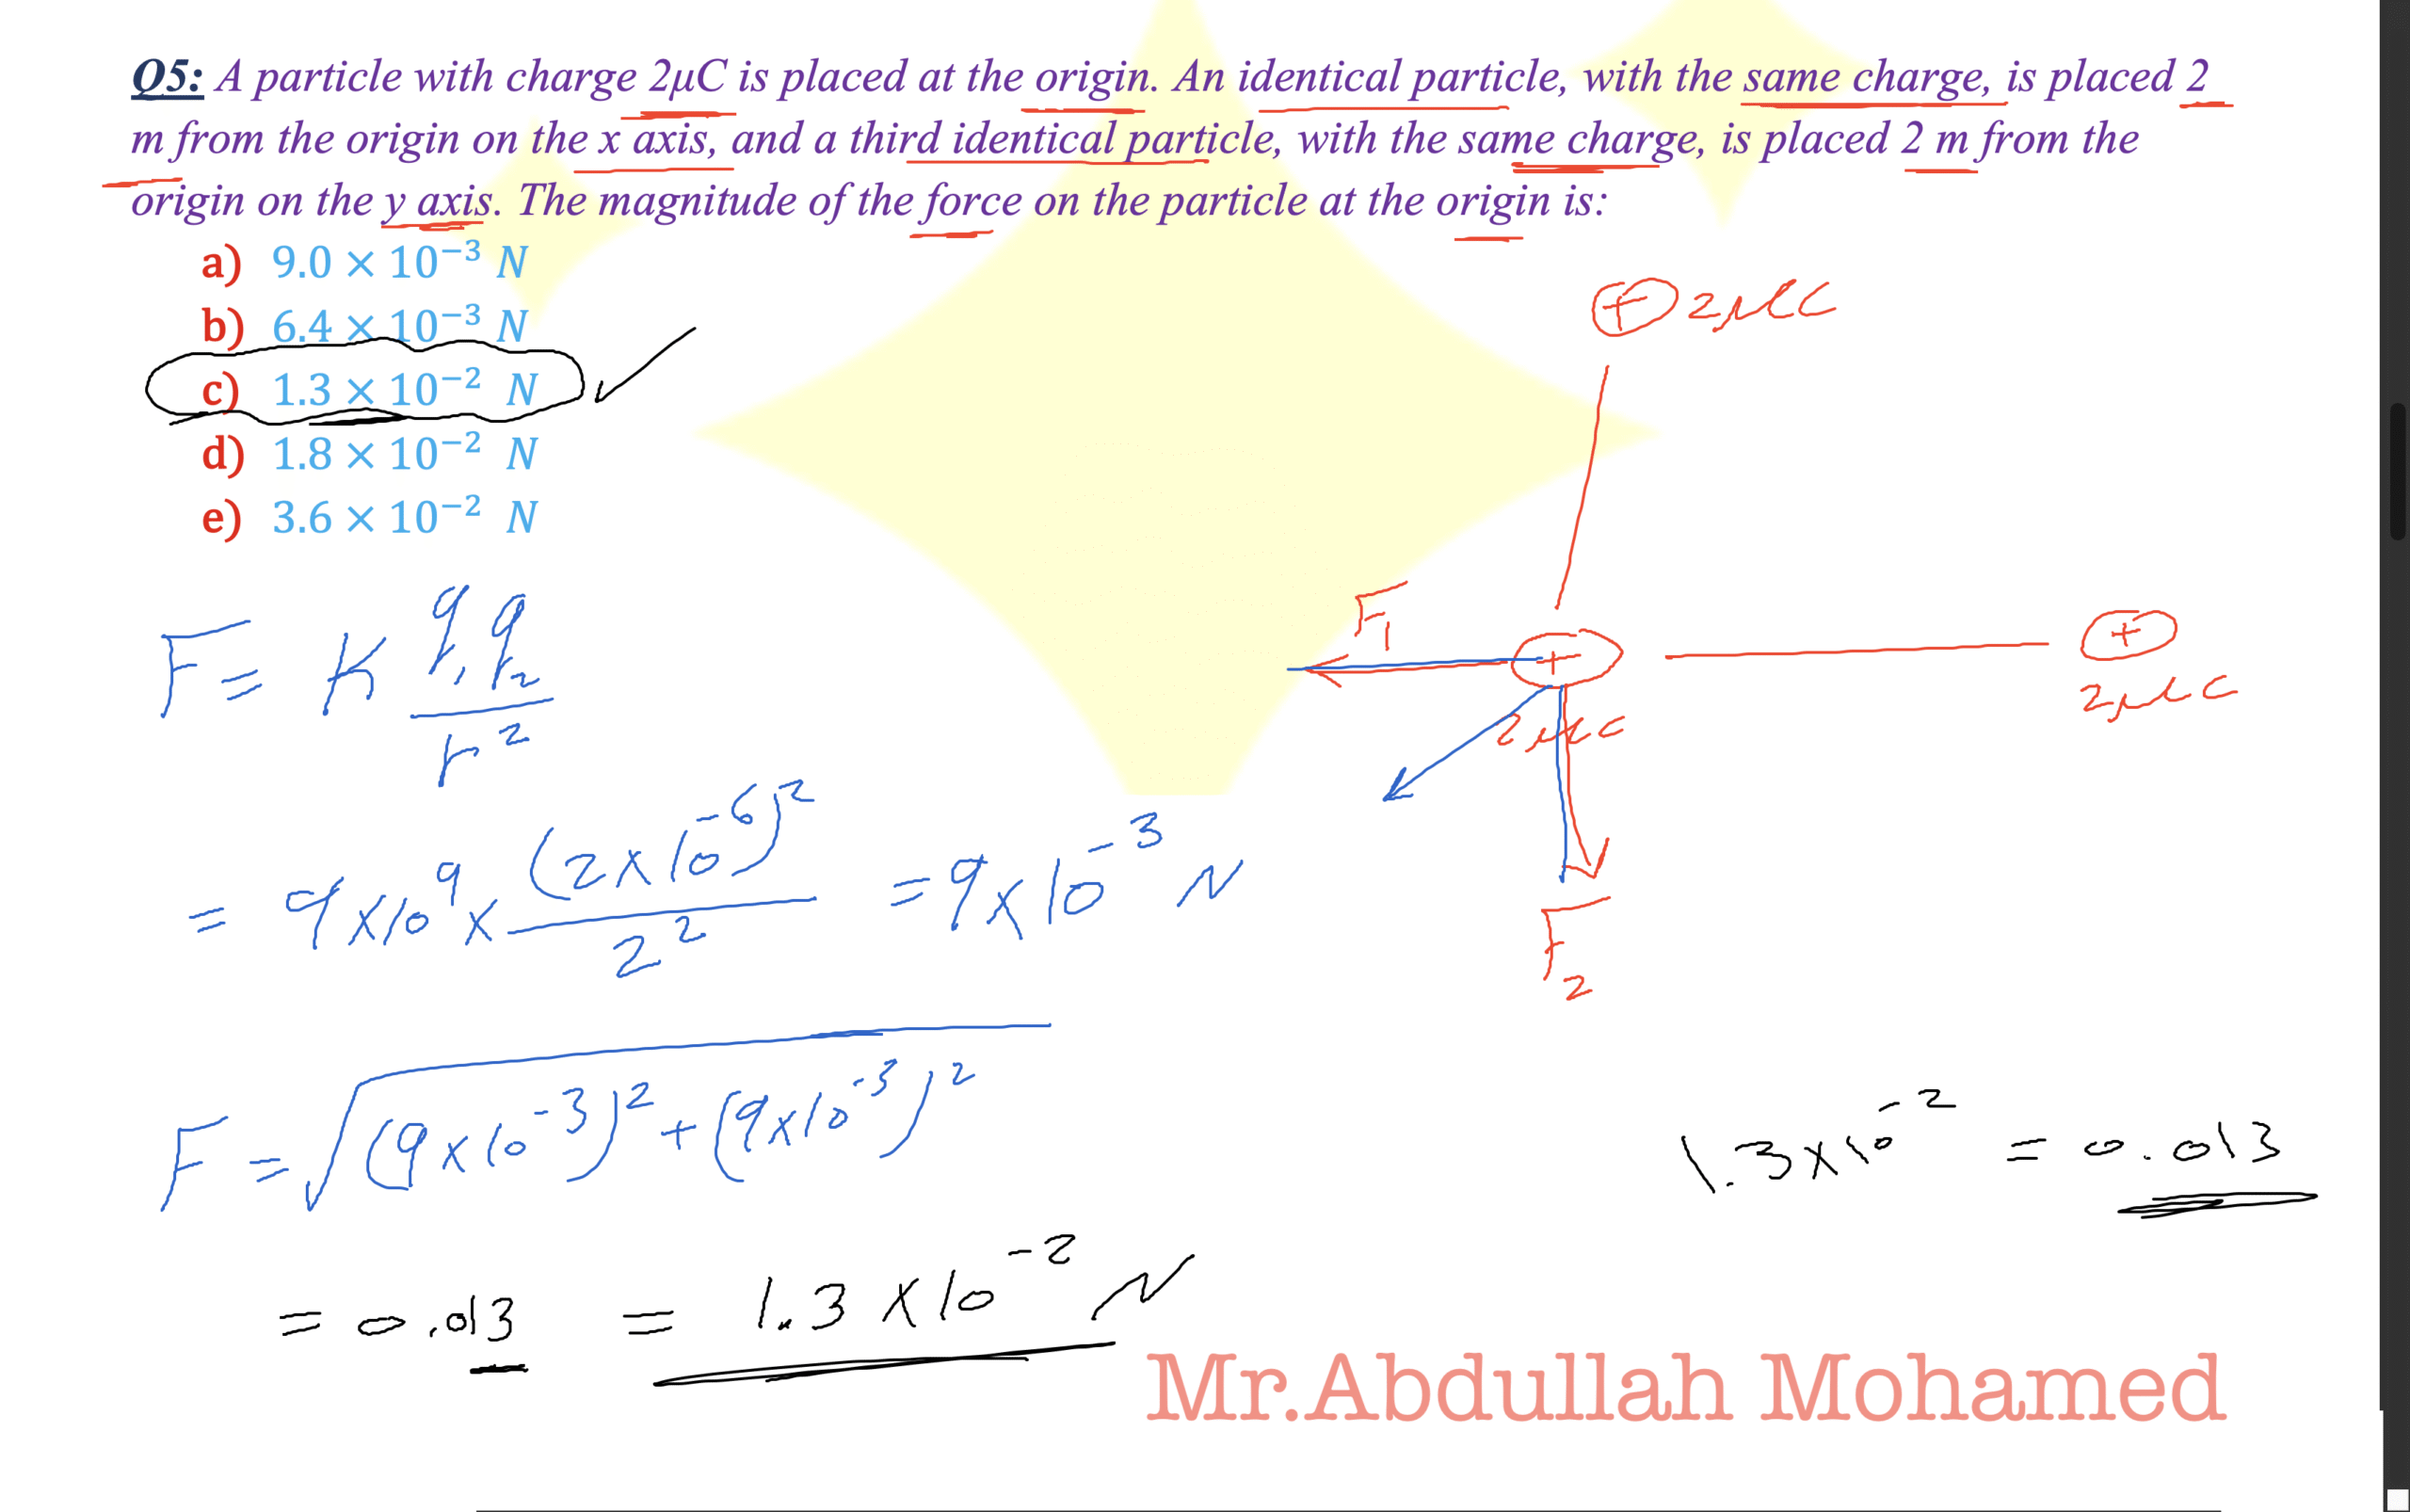 Q5: A particle with charge 2μC is placed at the origin. An identical particle, with the same charge, is placed 2
m from the origin on the x axis, and a third identical particle, with the same charge, is placed 2 m from the
origin on the y axis. The magnitude of the force on the particle at the origin is:
a) 9.0 × 10⁻³ N
b) 6.4 × 10⁻³ N
c) 1.3 × 10⁻² N
d) 1.8 × 10⁻² N
e) 3.6 × 10⁻² N
+ 2μC
F₁
+
+
2μC
2μC
F₂
F = K q₁ q₂ / r²
= 9×10⁹ × (2×10⁻⁶)² / 2² = 9×10⁻³ N
F = √(9×10⁻³)² + (9×10⁻³)²
1.3×10⁻² = 0.013
= 0.013 = 1.3×10⁻² N
Mr.Abdullah Mohamed